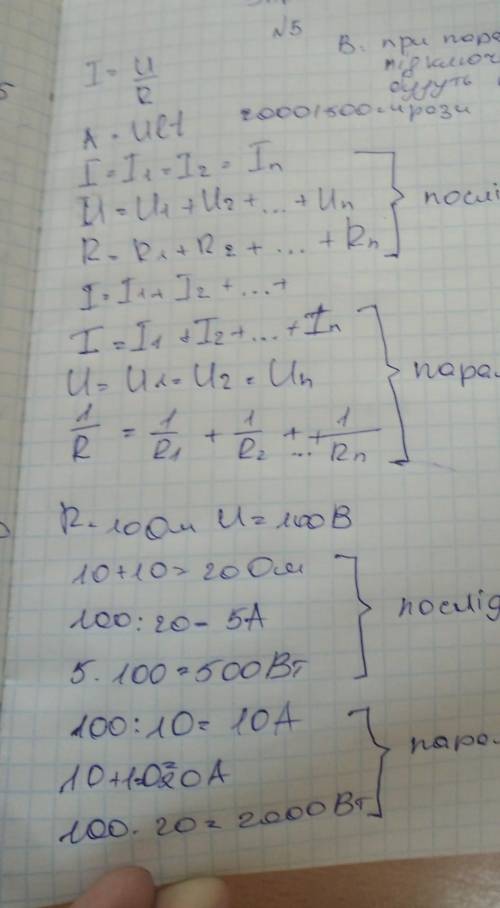 №5
В. при пара
підключ
будуть
I = U/R
A = UIt 2000/500 = 4 рази
I = I1 = I2 = In
U = U1 + U2 + ... + Un
R = R1 + R2 + ... + Rn
послі
I = I1 + I2 + ... +
I = I1 + I2 + ... + In
U = U1 = U2 = Un
1/R = 1/R1 + 1/R2 + ... + 1/Rn
пара
R = 10 Ом U = 100 В
10 + 10 = 20 Ом
100 : 20 = 5А
5 · 100 = 500 Вт
послід
100 : 10 = 10 А
10 + 10 = 20А
100 · 20 = 2000 Вт
пара